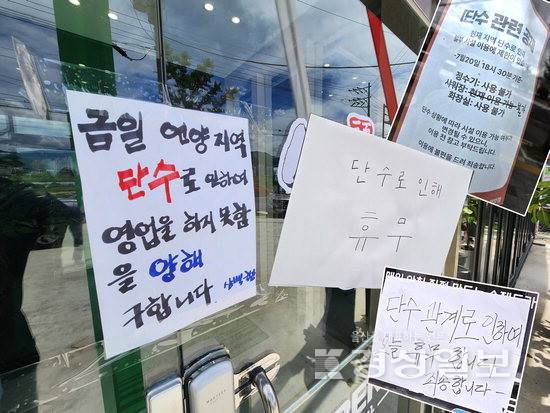 금일 언양지역
단수로 인하여
영업을 하지 못함
을 양해
구합니다
단수로 인해
휴무
(단수 관련
현재 지역 단수로 인해
시설 이용에 제한이
7월20일 18시 30분 기준
정수기: 사용 불가
샤워장:
화장실: 사용 불가
단수 상황에 따라 시설 이용 가능
변경될 수 있으니,
이용 전 참고 부탁드립니다.
이용에 불편을 드려 죄송합니다.
단수 관계로 인하여
휴무 합니다
죄송합니다
경상일보